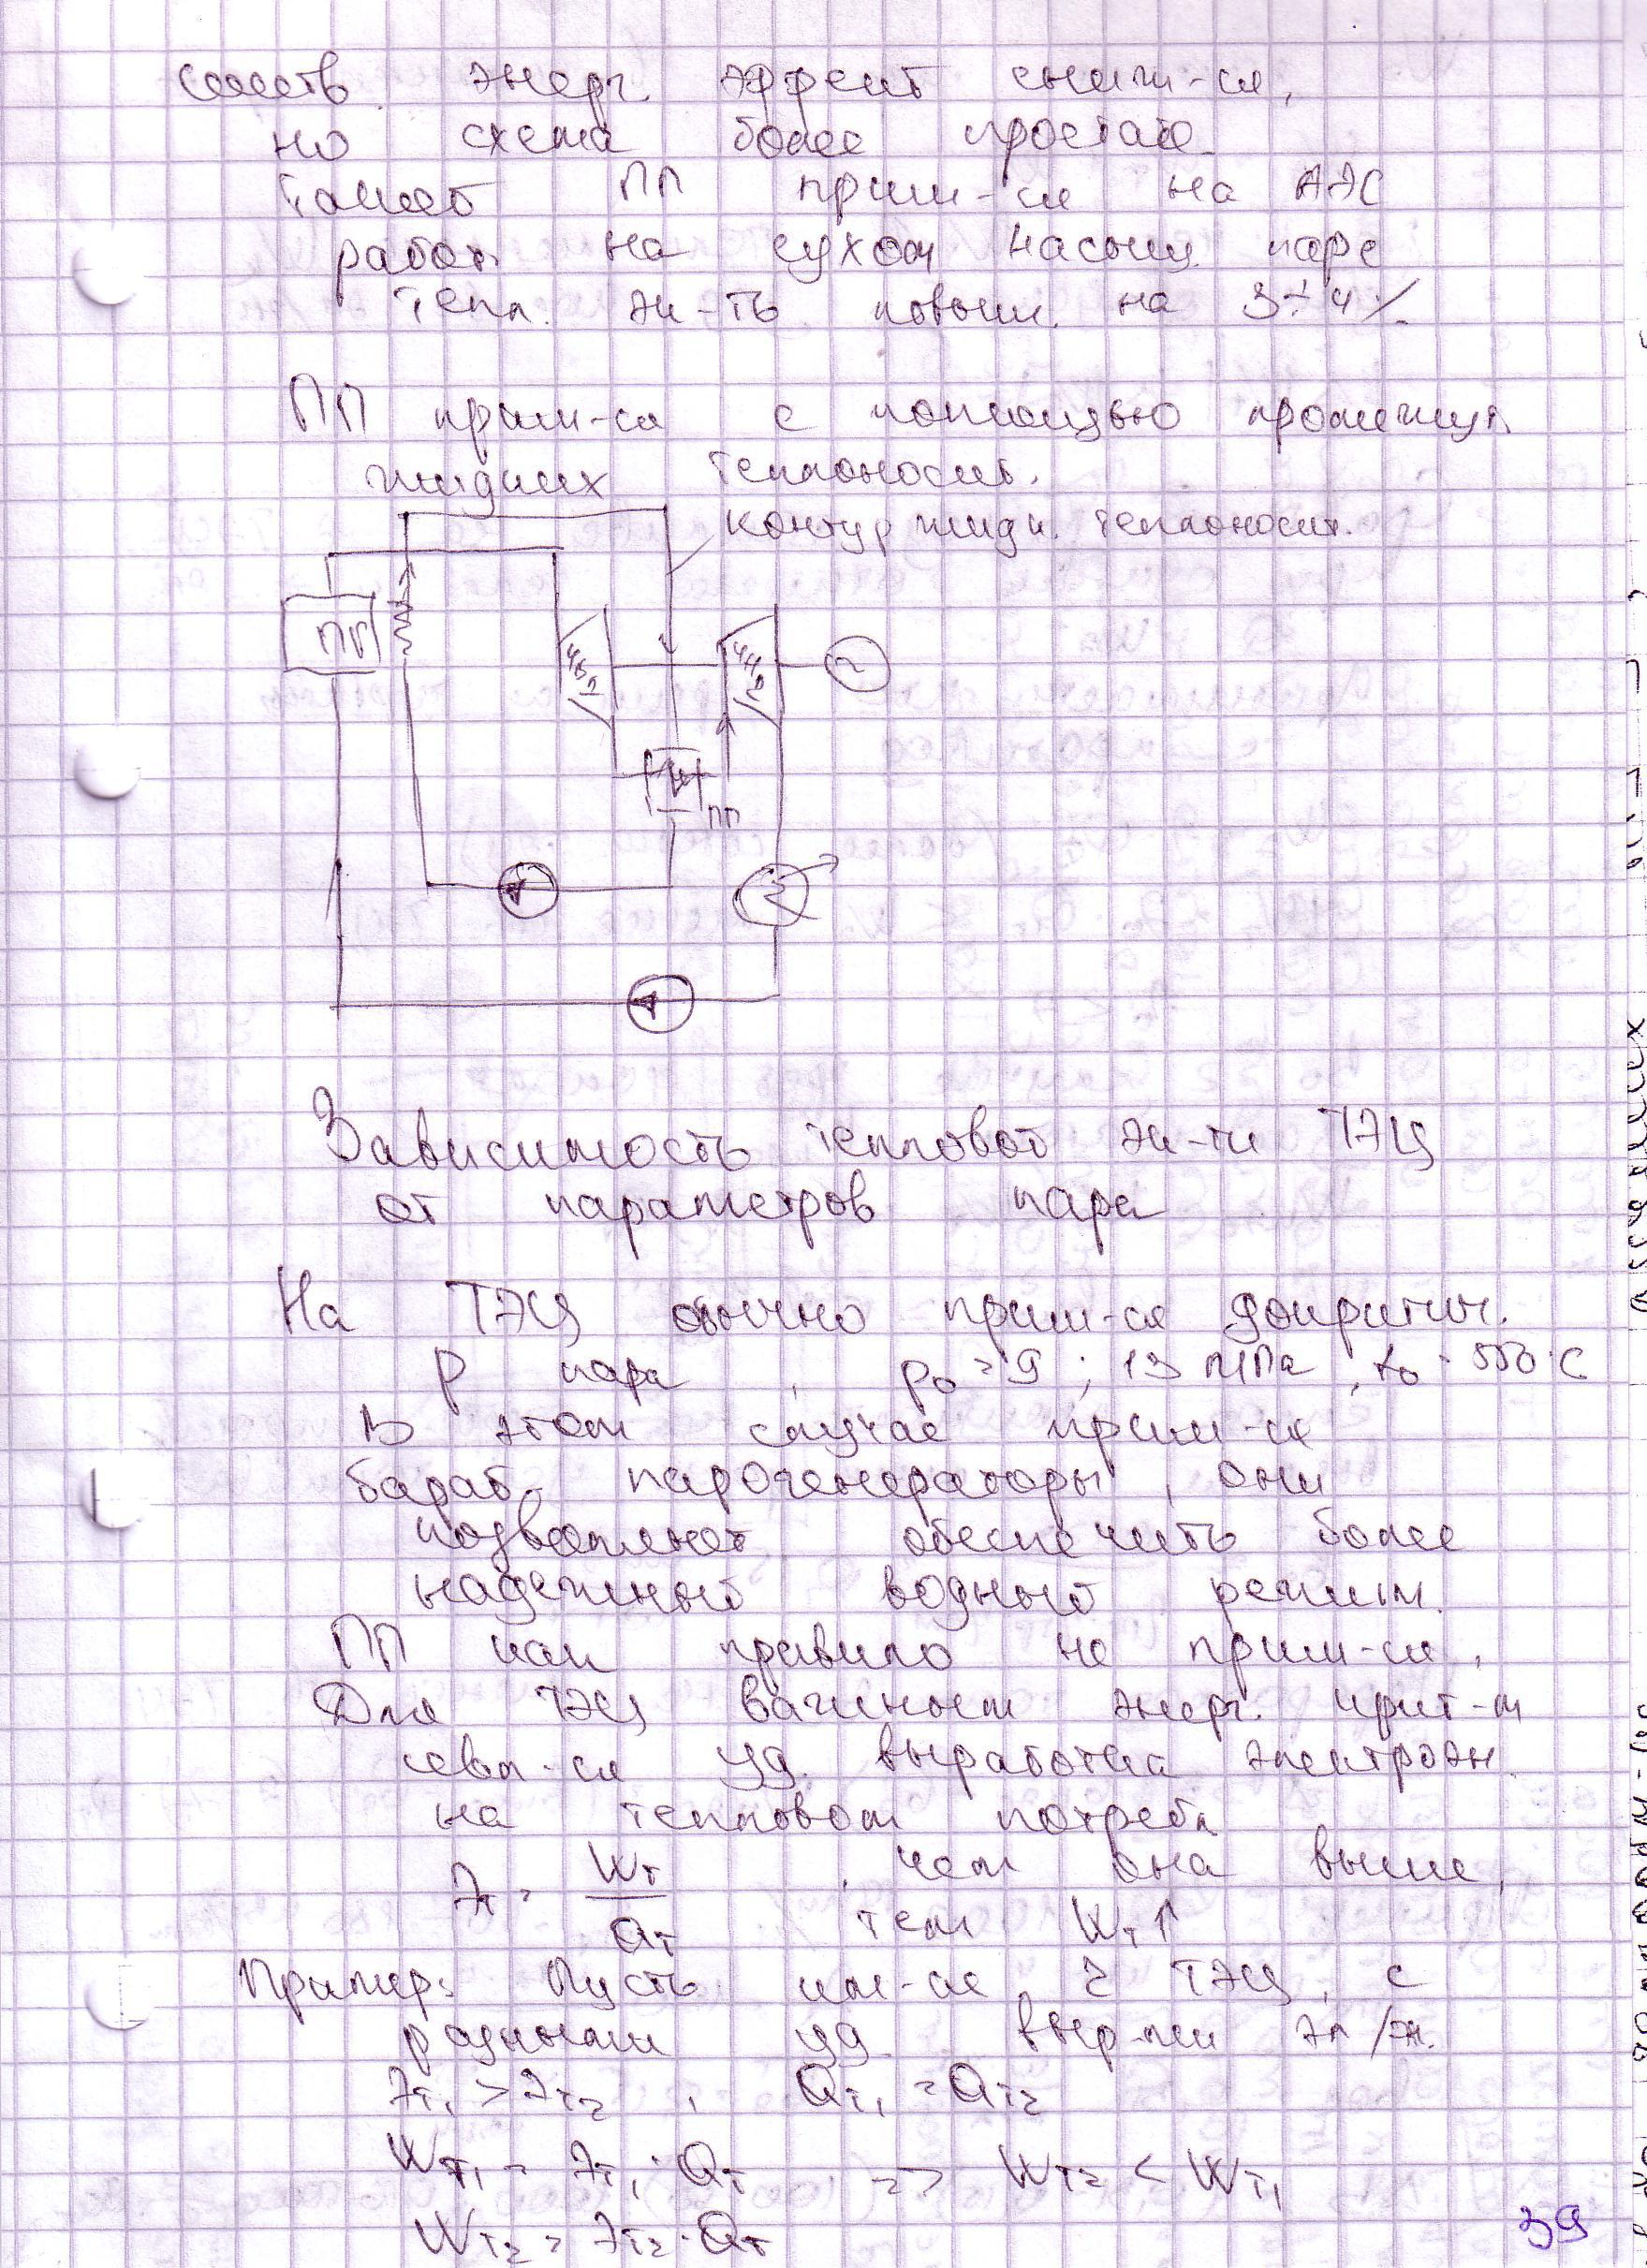 соотв. энерг. эффект сниж-ся,
но схема более простая.
Такой ПП прим-ся на АЭС
работ. на сухом насыщ. паре
тепл. эк-ть повыш. на 3÷4%
ПП прим-ся с помощью промежут.
жидких теплоносит.
контур жидк. теплоносит.
ПГ
ЧВД
ЧНД
ПП
Зависимость тепловой эк-ти ТЭЦ
от параметров пара
На ТЭЦ обычно прим-ся докритич.
P пара, p₀ = 9; 13 МПа, t₀ = 550°C
В этом случае прим-ся
бараб. парогенераторы, они
позволяют обеспечить более
надежный водный режим.
ПП как правило не прим-ся.
Для ТЭЦ важным энерг. крит-м
явл-ся уд. выработка электроэн.
на тепловом потребл
Эт = Wт/Qт, чем она выше,
тем Wт↑
Пример: Пусть им-ся 2 ТЭЦ, с
разными уд. выр-ми эл/эн.
Эт₁ > Эт₂, Qт₁ = Qт₂
Wт₁ = Эт₁·Qт => Wт₂ < Wт₁
Wт₂ = Эт₂·Qт
39